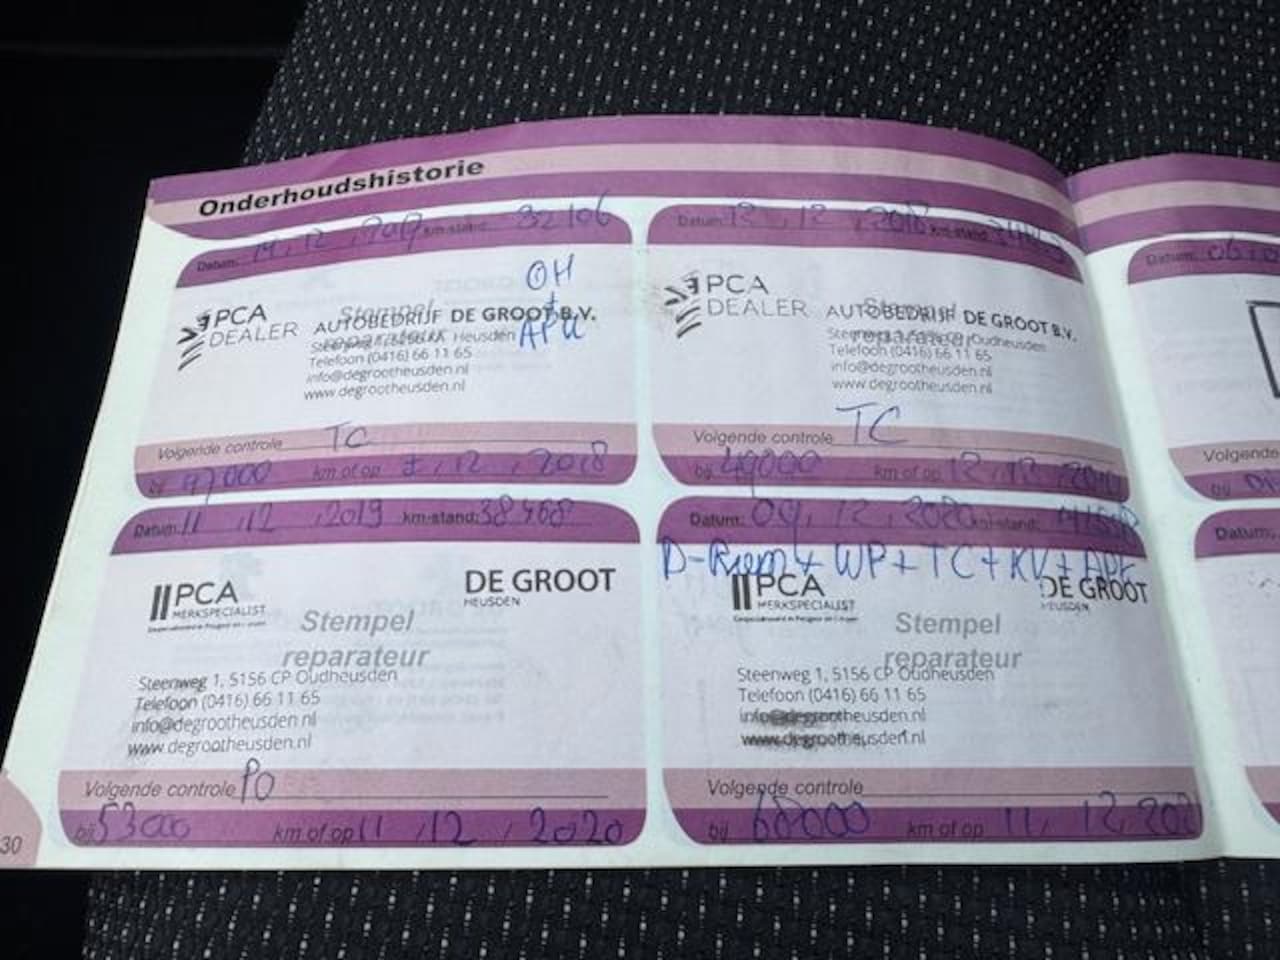 Onderhoudshistorie
Datum: 12, 2017 km-stand: 32106
OH
+
APK
PCA
DEALER
Stempel
reparateur
AUTOBEDRIJF DE GROOT B.V.
Steenweg 1, 5256 KA Heusden
Telefoon (0416) 66 11 65
info@degrootheusden.nl
www.degrootheusden.nl
Volgende controle TC
bij 47000 km of op ±, 12, 2018
Datum: 12, 12, 2018 km-stand
PCA
DEALER
Stempel
reparateur
AUTOBEDRIJF DE GROOT B.V.
Oudheusden
Telefoon (0416) 66 11 65
info@degrootheusden.nl
www.degrootheusden.nl
Volgende controle TC
bij 49000 km of op 12, 12,
Datum: 11, 12, 2019 km-stand: 38468
PCA
MERKSPECIALIST
DE GROOT
HEUSDEN
Stempel
reparateur
Steenweg 1, 5156 CP Oudheusden
Telefoon (0416) 66 11 65
info@degrootheusden.nl
www.degrootheusden.nl
Volgende controle PO
bij 53000 km of op 11, 12, 2020
Datum: 09, 12, 2020 km-stand:
D-Riem + WP + TC + KV + APK
PCA
MERKSPECIALIST
DE GROOT
HEUSDEN
Stempel
reparateur
Steenweg 1, 5156 CP Oudheusden
Telefoon (0416) 66 11 65
info@degrootheusden.nl
www.degrootheusden.nl
Volgende controle
bij 68000 km of op 11, 12,
30
Datum: 06
Volgende
bij
Datum: